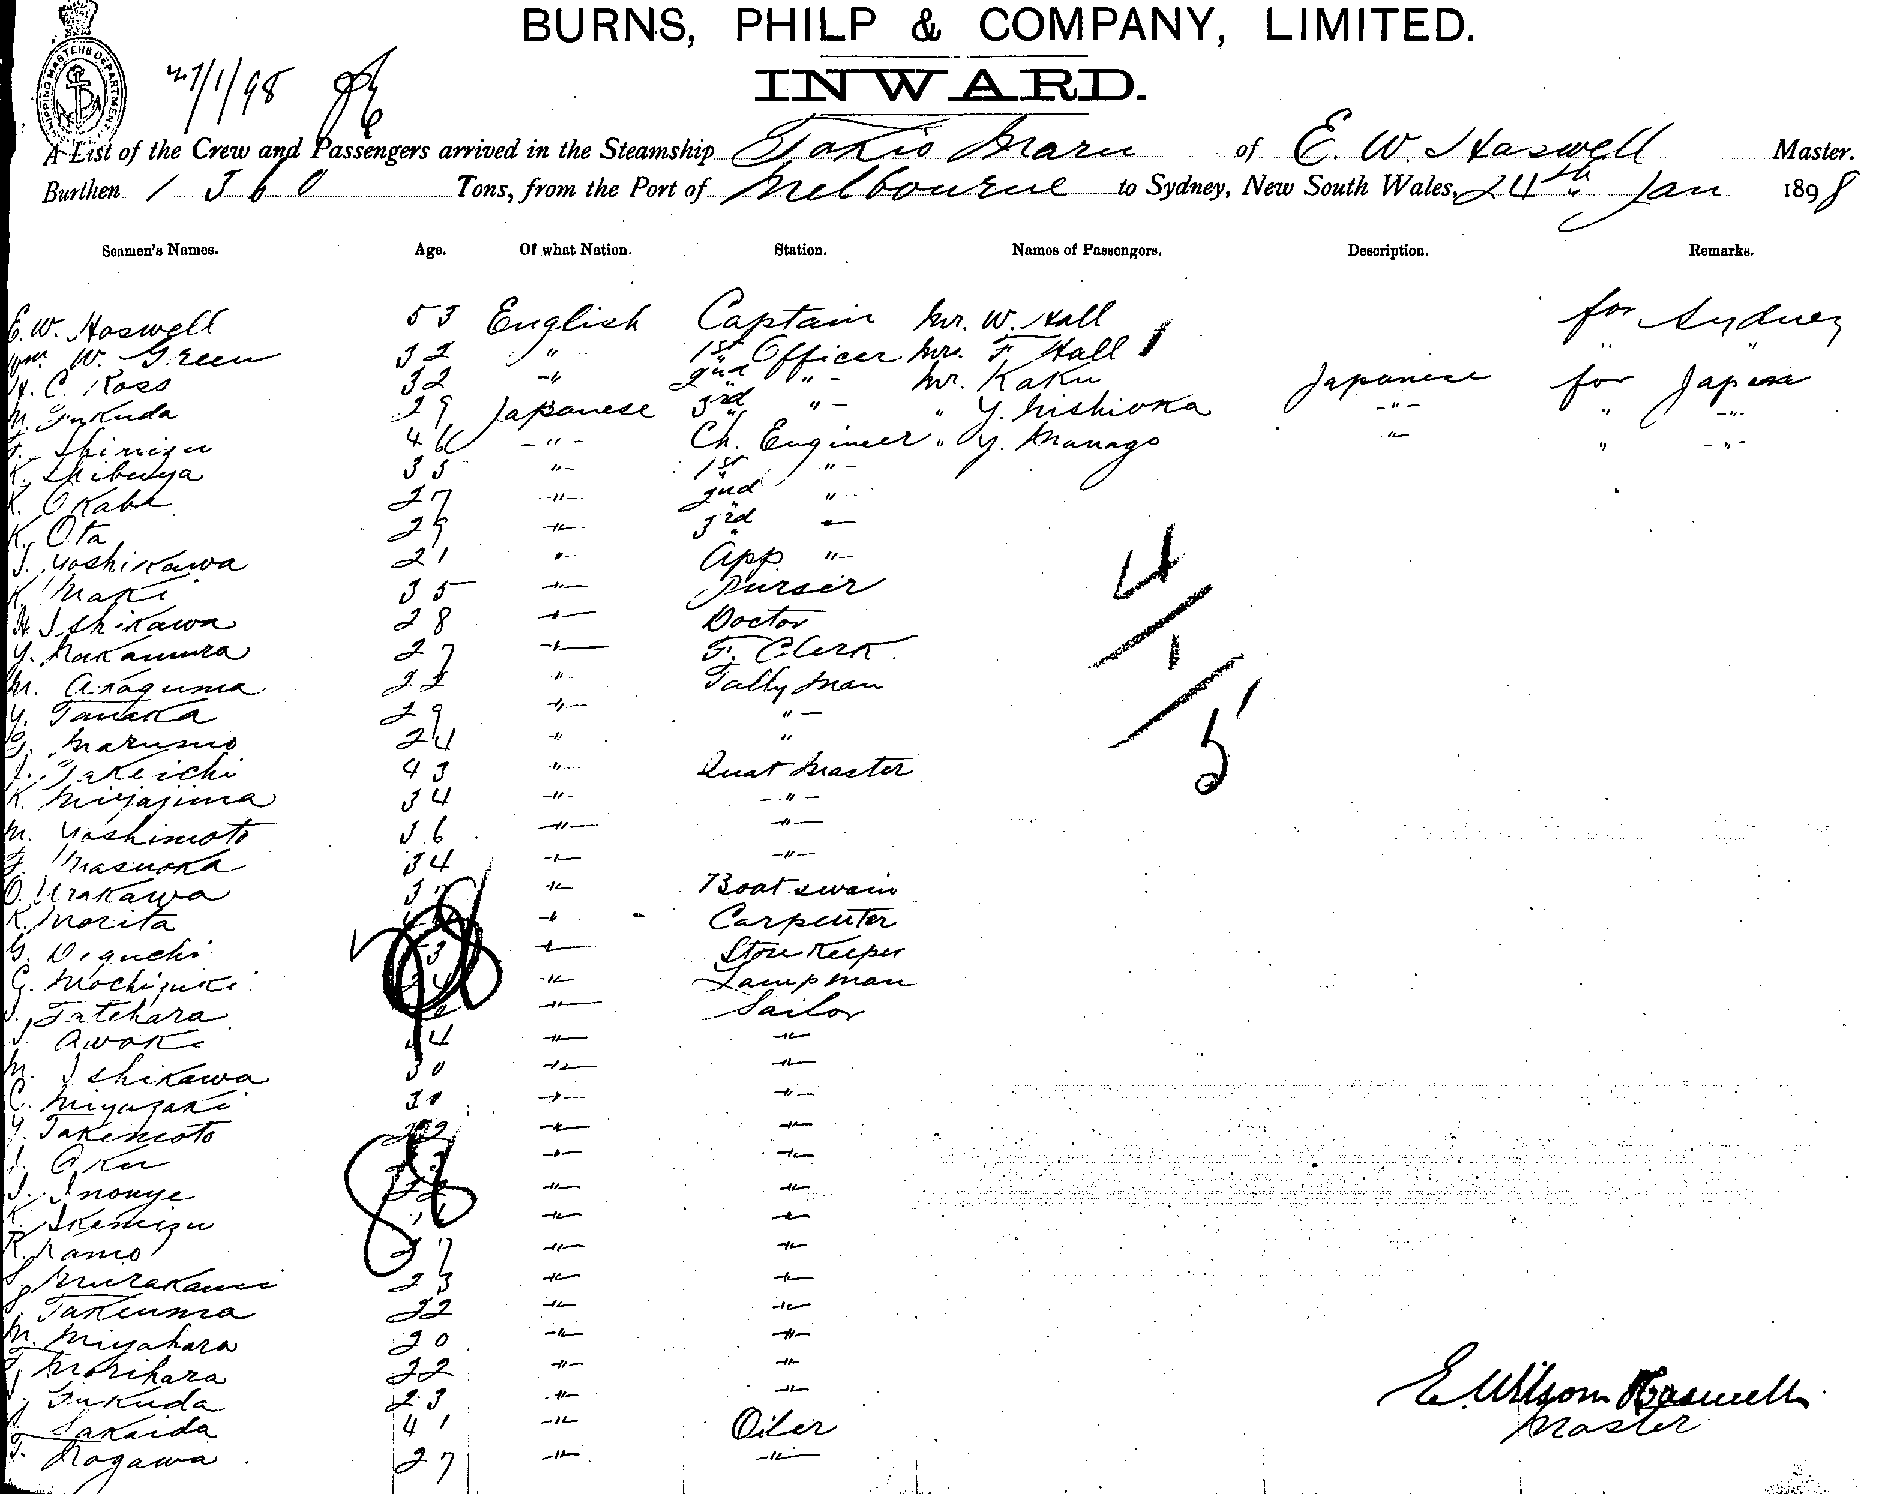 BURNS, PHILP & COMPANY, LIMITED.
INWARD.
27/1/98
A List of the Crew and Passengers arrived in the Steamship Tokio Maru of E. W. Haswell Master.
Burthen 1360 Tons, from the Port of Melbourne to Sydney, New South Wales, 24th Jan 1898
Seamen's Names. Age. Of what Nation. Station. Names of Passengers. Description. Remarks.
E. W. Haswell 53 English Captain Mr. W. Hall for Sydney
Wm. W. Green 32 " 1st Officer Mrs. F. Hall "  "
H. C. Ross 32 " 2nd " Mr. Kaku Japanese for Japan
M. Fukuda 29 Japanese 3rd " " Y. Nishioka " " "
T. Shimizu 46 " Ch. Engineer " Y. Manago " " "
K. Shibuya 35 " 1st "
K. Okabe 27 " 2nd "
K. Ota 29 " 3rd "
S. Yoshikawa 21 " App "
K. Maki 35 " Purser
H. Ishikawa 28 " Doctor
Y. Nakamura 27 " F. Clerk
M. Araguma 22 " Tally man
Y. Tanaka 29 " "
G. Marumo 24 " "
J. Takeichi 43 " Quat Master
K. Miyajima 34 " "
M. Yoshimoto 36 " "
F. Masuoka 34 " "
O. Urakawa " Boatswain
K. Morita " Carpenter
G. Deguchi " Store Keeper
G. Mochizuki " Lampman
Tatehara " Sailor
Awoki 34 " "
M. Ishikawa 30 " "
C. Miyazaki 30 " "
Y. Takemoto 22 " "
Oku " "
Inouye 22 " "
K. Ikemizu " "
K. Namo 27 " "
Murakami 23 " "
Takeuma 22 " "
M. Miyahara 20 " "
Morihara 22 " "
Fukuda 23 " "
Sakaida 41 " Oiler
T. Nogawa 27 " "
4/1/5
E. Wilson Haswell
Master